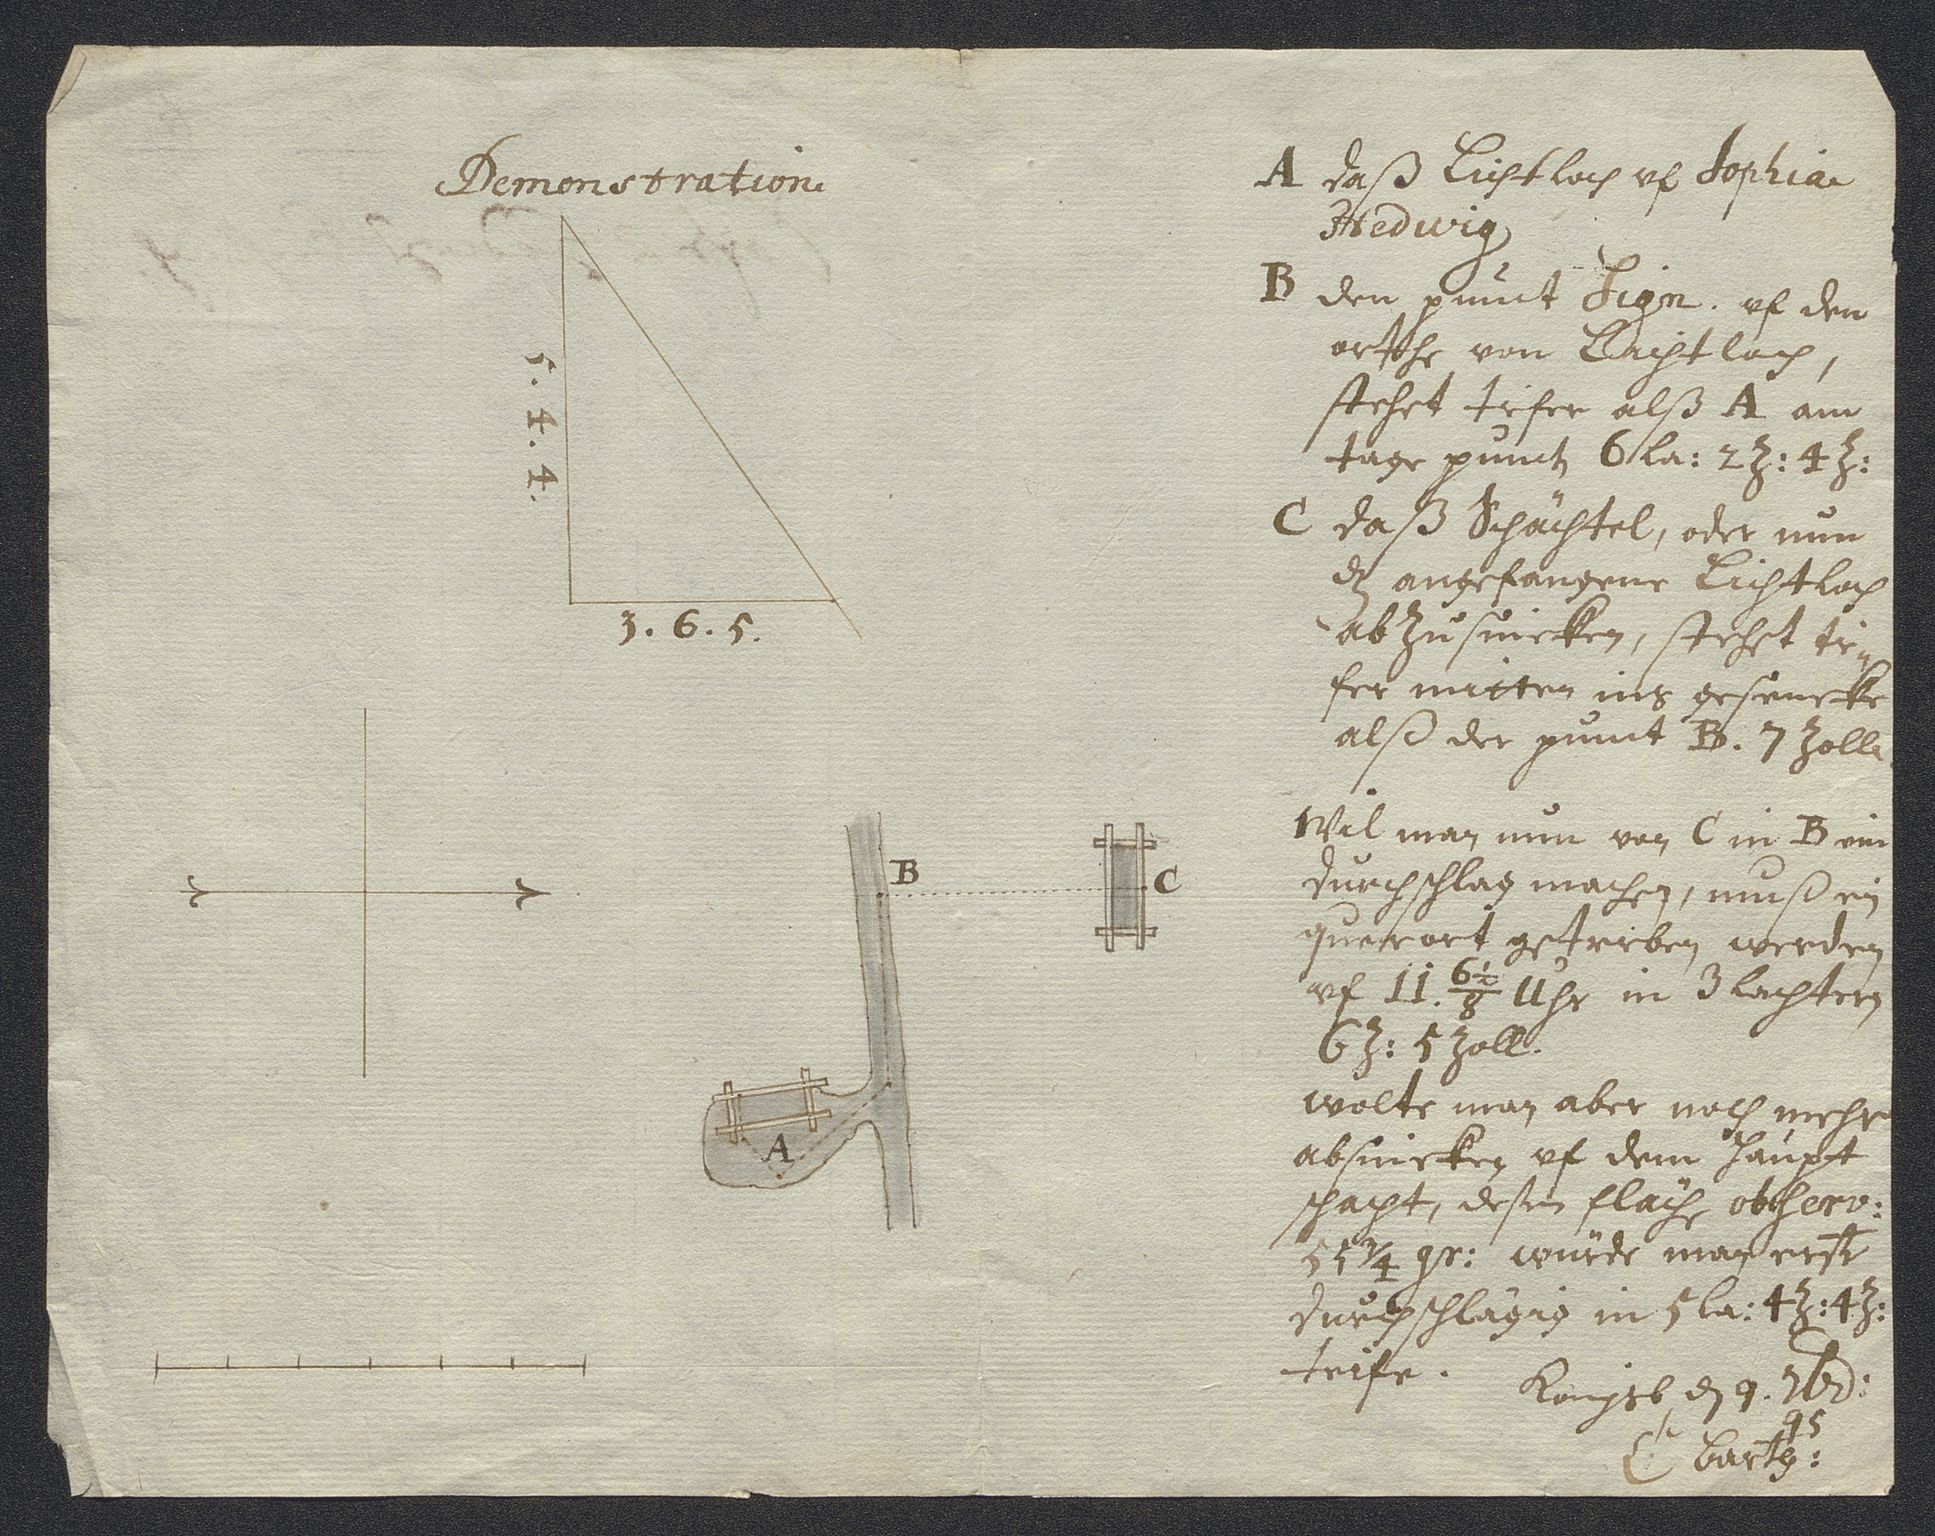 Demonstration
5. 4. 4.
3. 6. 5.
B
C
A
A daß Lichtloch uf Sophiae
Hedwig
B den punct Sign. uf den
orthe von Lichtloch,
stehet tiefer alß A am
tage punct 6 la: 2 Z: 4 Z:
C daß Schächtel, oder nun
dz angefangene Lichtloch
abZusincken, stehet tie=
fer mitten ins gesencke
alß der punct B. 7 Zolle
Wil man nun von C in B ein
durchschlag machen, muß ein
querort getrieben werden
uf 11. 6½/8 Uhr in 3 lachtern
6 Z: 5 Zoll.
wolte man aber noch mehr
absincken uf dem Haupt
schacht, deßen flache observ:
55 3/4 gr: würde man erst
durchschlägig in 5 la: 4 Z: 4 Z:
teife.
Kongsb den 9. 7br:
95
Barth: